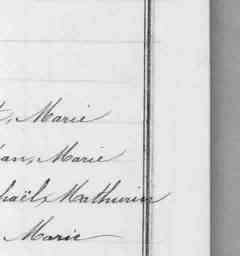 t, Marie
an, Marie
haël, Mathurin
Marie